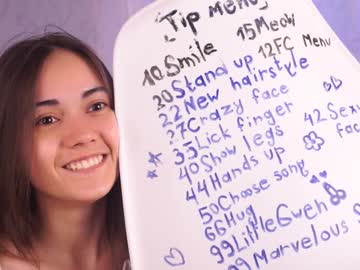 Tip Menu
10 Smile
15 Meow
12 FC Menu
20 Stand up
22 New hairstyle
27 Crazy face
35 Lick finger
40 Show legs
42 Sex
fac
44 Hands up
50 Choose song
66 Hug
99 Little Gweh
99 Marvelous S